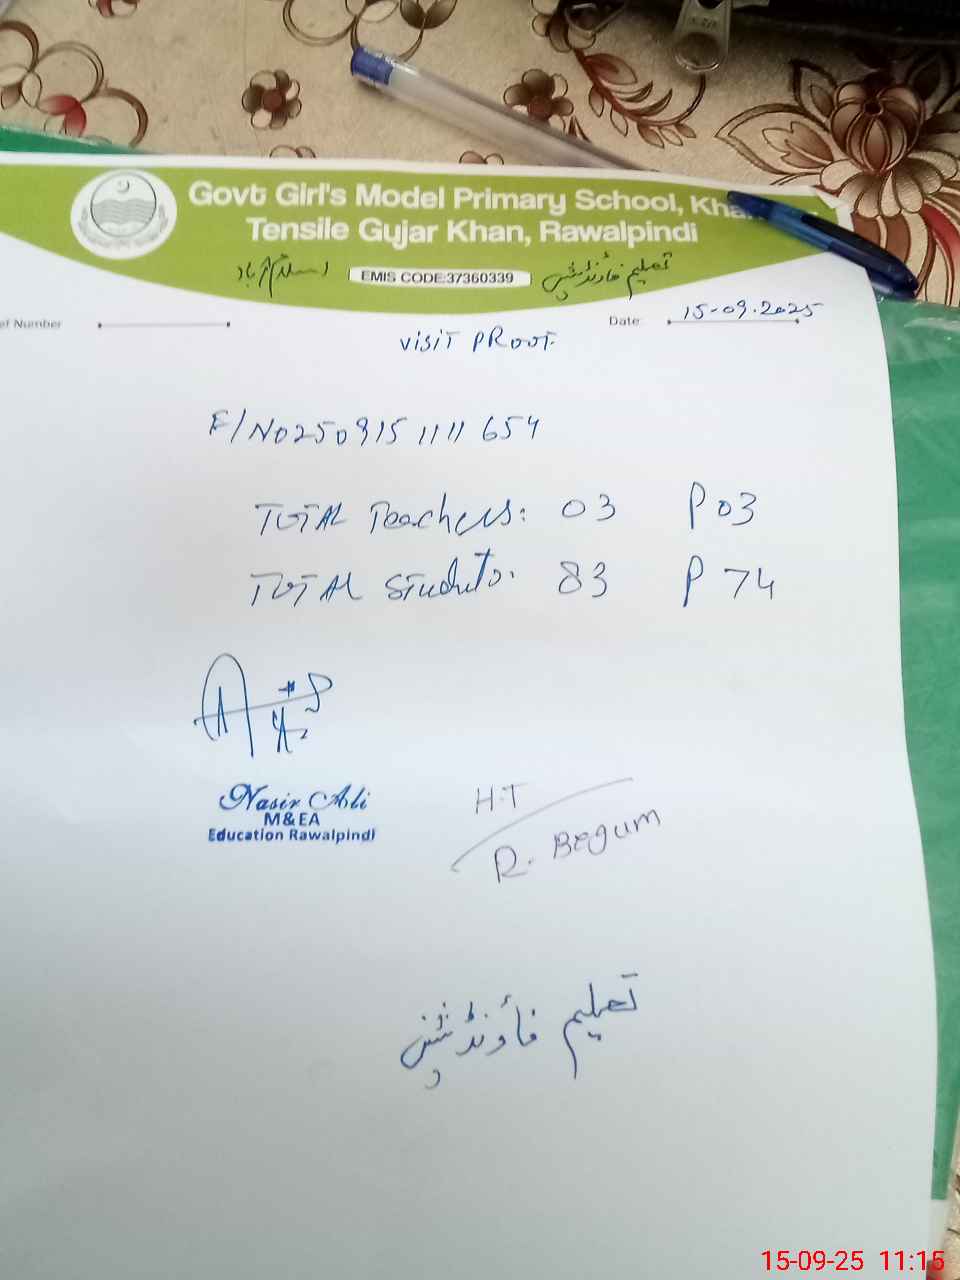 Govt Girl's Model Primary School,
Tensile Gujar Khan, Rawalpindi
تعلیم فاؤنڈیشن اسلام آباد
EMIS CODE:37360339
ef Number
Date: 15-09-2025
VISIT PROOF.
F/NO2509151111654
TOTAL Teachers: 03 P 03
TOTAL Students. 83 P 74
Nasir Ali
M&EA
Education Rawalpindi
H.T
R. Begum
تعلیم فاؤنڈیشن
15-09-25 11:15